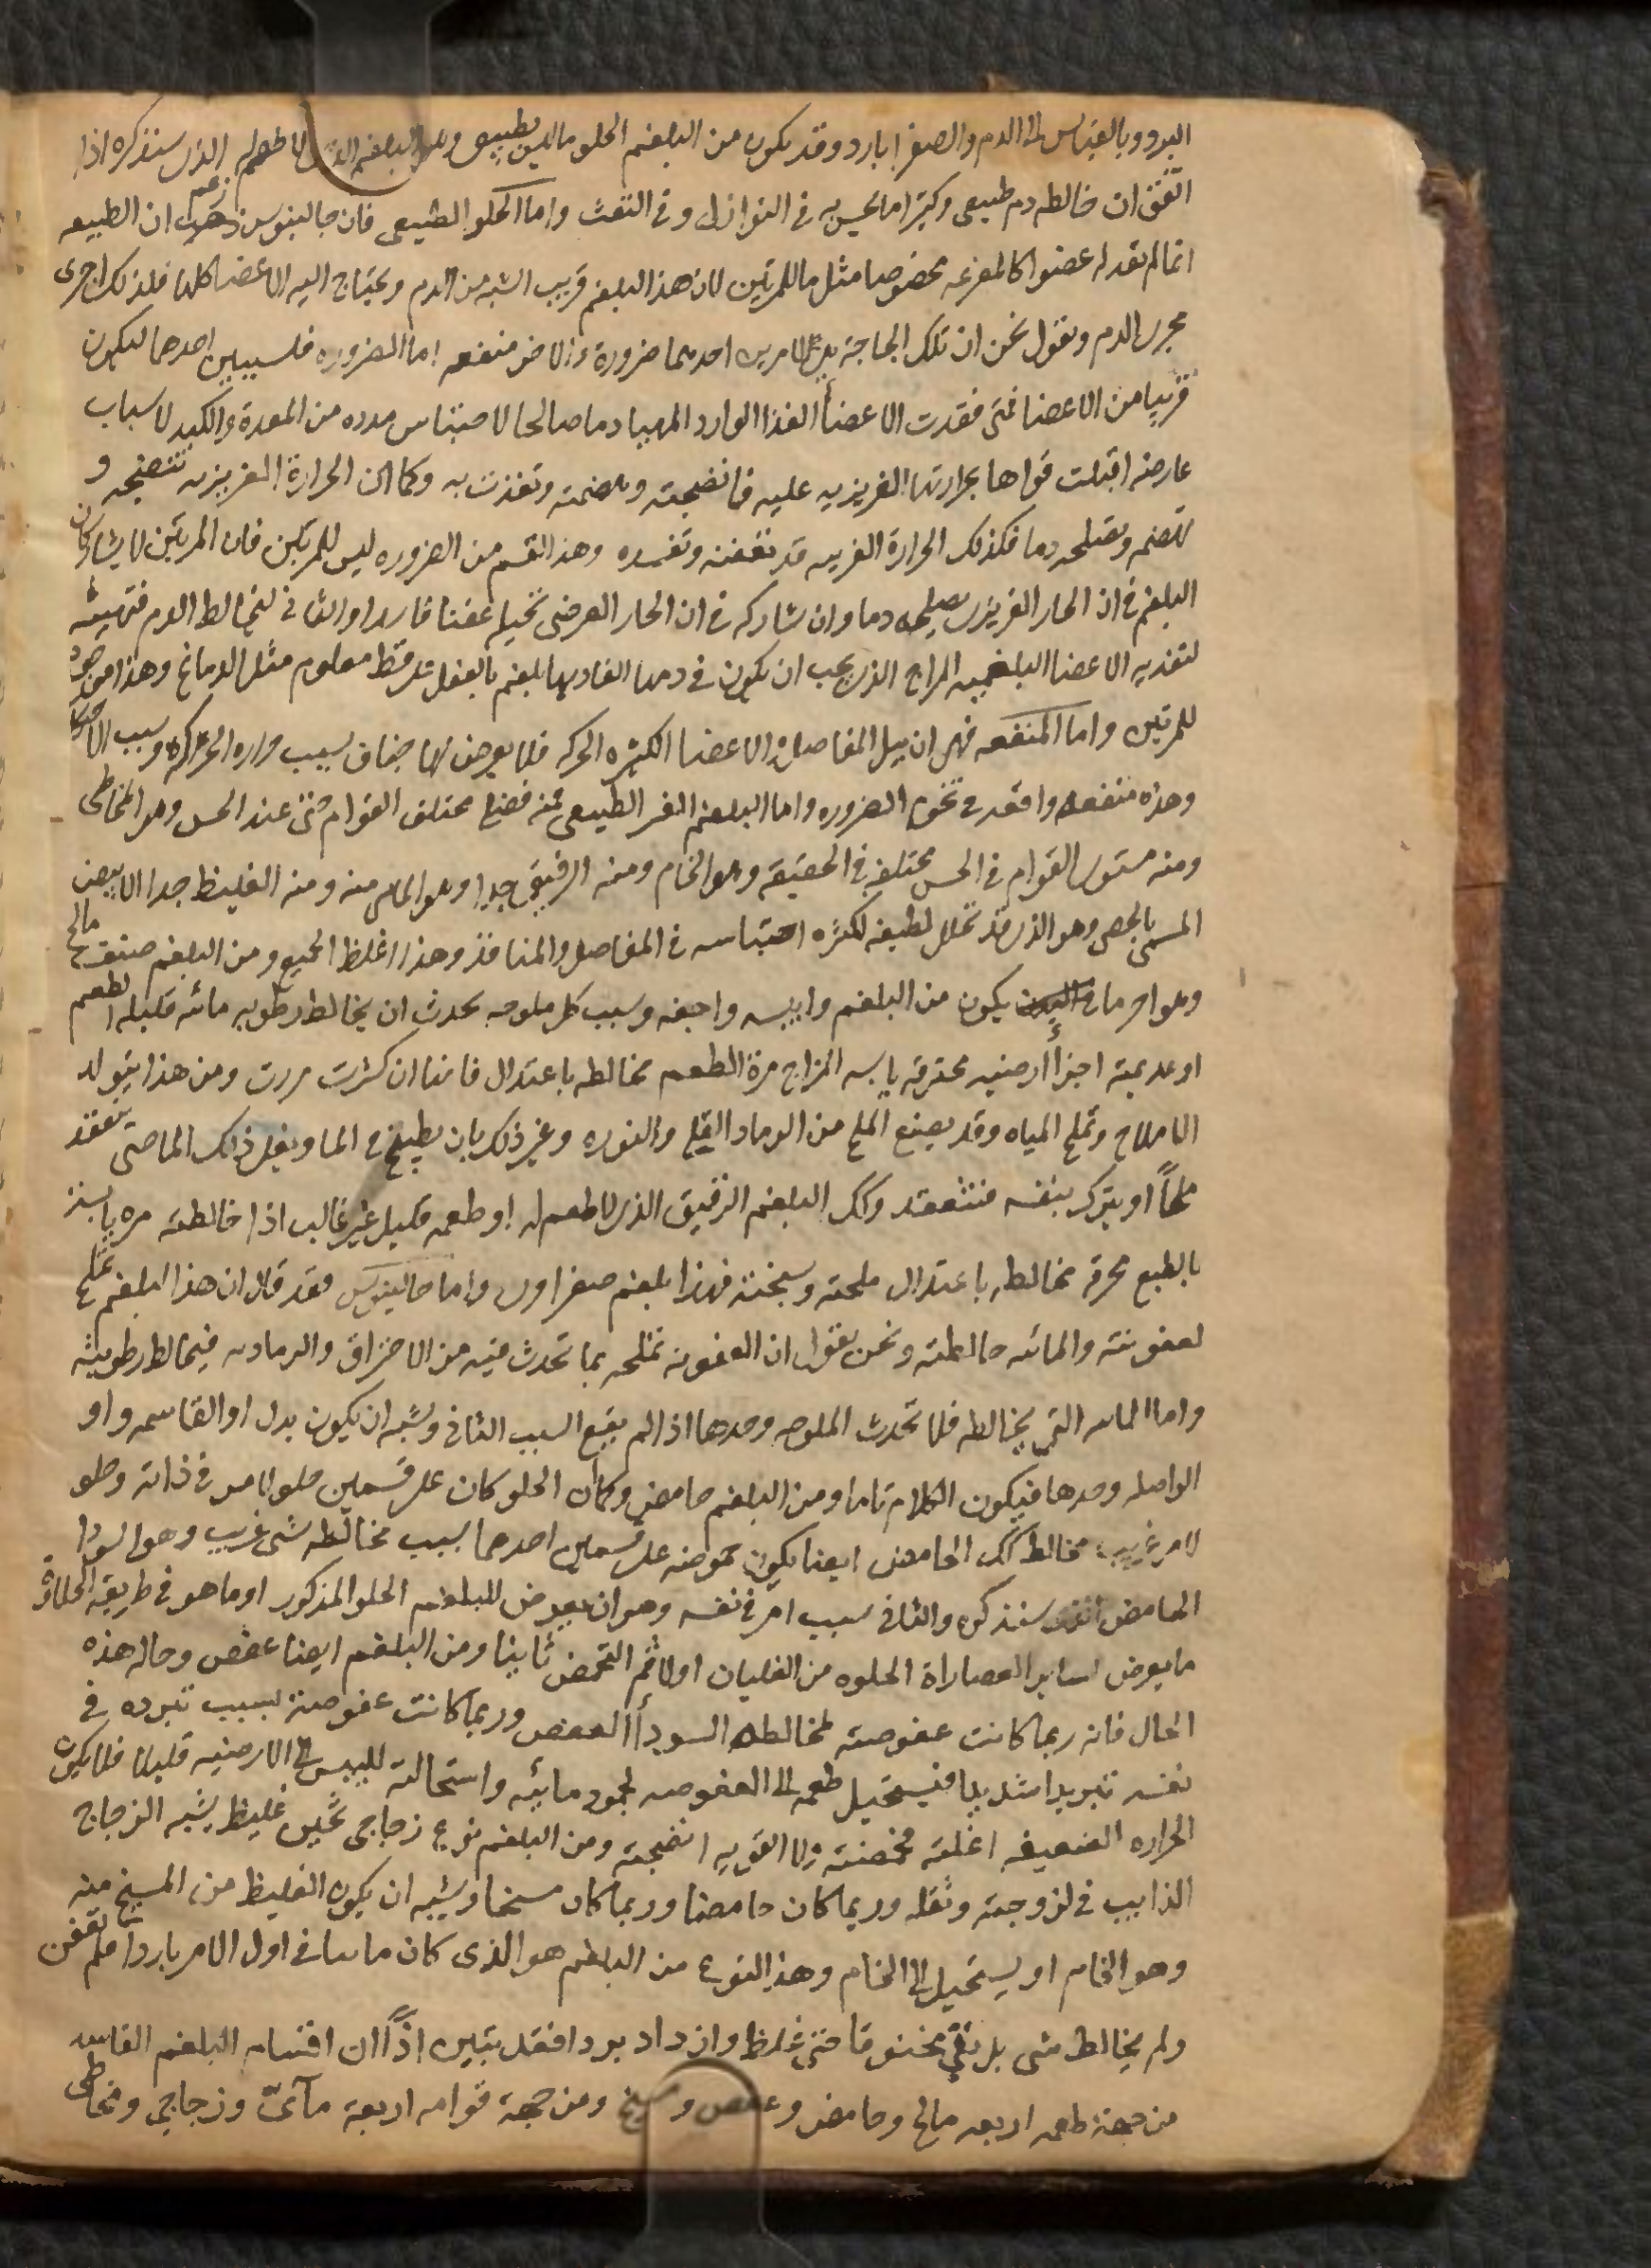 البرد وبالقياس الى الدم والصفرا بارد وقد يكون من البلغم الحلو ما ليس بطبيعى وهو البلغم الذى لا طعم له الذى سنذكره اذا
اتفق ان خالطه دم طبيعى وكثيرا ما يحس به فى النوازل وفى النفث واما الحلو الطبيعى فان جالينوس زعم ان الطبيعه
انما لم تعد له عضوا كالمفرغه مخصوصا مثل ما للمرتين لان هذا البلغم قريب الشبه من الدم وتحتاج اليه الاعضا كلها فلذلك اجرى
مجرى الدم ونقول نحن ان تلك الحاجة هى لامرين احدهما ضرورة والاخر منفعه اما الضروره فلسببين احدهما ليكون
قريبا من الاعضا فمتى فقدت الاعضأ الغذا الوارد المهيا دما صالحا لاحتباس مدده من المعدة والكبد لاسباب
عارضه اقبلت قواها بحرارتها الغريزيه عليه فانضجته وهضمته وتغذت به وكما ان الحرارة الغريزيه تنضجه و
تهضمه وتصلحه دما فكذلك الحرارة الغريبه قد تعفنه وتفسده وهذا القسم من الضروره ليس للمرتين فان المرتين لا يشاركان
البلغم فى ان الحار الغريزى يصلحه دما وان شاركه فى ان الحار العرضى يحيله عفنا فاسدا والثانى ليخالط الدم فتهيئه
لتغذيه الاعضا البلغميه المزاج الذى يجب ان يكون فى دمها الغاديها بلغم بالفعل على قسط معلوم مثل الدماغ وهذا موجود
للمرتين واما المنفعه فهى ان يبل المفاصل والاعضا الكثيره الحركه فلا يعرض لها جفاف بسبب حراره الحركه وسبب الاحتكاك
وهذه منفعه واقعه فى تخوم الضروره واما البلغم الغير الطبيعى فمنه فضلى مختلف القوام حتى عند الحس وهو المخاطى
ومنه مستوى القوام فى الحس مختلفه فى الحقيقه وهو الخام ومنه الرقيق جدا وهو المائى منه ومنه الغليظ جدا الابيض
المسمى بالجصى وهو الذى قد تحلل لطيفه لكثره احتباسه فى المفاصل والمنافذ وهذا اغلظ الجميع ومن البلغم صنف مالح
وهو احر ما يكون من البلغم وايبسه واجفه وسبب كل ملوحه تحدث ان يخالط رطوبه مائه قليله الطعم
او عديمته اجزأ ارضيه محترقه يابسه المزاج مرة الطعم مخالطه باعتدال فانها ان كثرت مررت ومن هذا يتولد
الاملاح وتملح المياه وقد يصنع الملح من الرماد والقلى والنوره وغير ذلك بان يطبخ فى الما ويغلى ذلك الما حتى ينعقد
ملحاً او يترك بنفسه فتنعقد وكك البلغم الرقيق الذى لا طعم له او طعمه قليل غير غالب اذا خالطته مره يابسة
بالطبع محرقه مخالطه باعتدال ملحته وسخنته فهذا بلغم صفراوى واما جالينوس فقد قال ان هذا البلغم تملح
لعفونته والمائه خالطته ونحن نقول ان العفونه تملحه بما تحدث فيه من الاحتراق والرماديه فيخالط رطوبته
واما المائه التى يخالطه فلا تحدث الملوحه وحدها اذا لم يقع السبب الثانى ويشبه ان يكون بدل او القاسمه واو
الواصله وحدها فيكون الكلام تاما ومن البلغم حامض وكما ان الحلو كان على قسمين حلو لامر فى ذاته وحلو
لامر غريب مخالط كك الحامض ايضا يكون حموضته على قسمين احدهما بسبب مخالطه شى غريب وهو السودا
الحامض الذى سنذكره والثانى سبب امر فى نفسه وهو ان يعرض للبلغم الحلو المذكور او ما هو فى طريقه الحلاوة
ما يعرض لساير العصاراة الحلوه من الغليان اولا ثم التحمض ثانيا ومن البلغم ايضا عفص وحاله هذه
الحال فانه ربما كانت عفوصته لمخالطه السودأ العفص وربما كانت عفوصته بسبب تبرده فى
نفسه تبريدا شديدا فيستحيل طعمه الى العفوصه لجمود مائيه واستحالته لليبس الى الارضيه قليلا فلا يكون
الحراره الضعيفه اغلته فحمضته ولا القويه انضجته ومن البلغم نوع زجاجى ثخين غليظ يشبه الزجاج
الذايب فى لزوجته وثقله وربما كان حامضا وربما كان مسخا ويشبه ان يكون الغليظ من المسيخ منه
وهو الخام او يستحيل الى الخام وهذا النوع من البلغم هو الذى كان مائيا فى اول الامر باردا فلم يعفن
ولم يخالط شى بل بقى مختنوقا حتى غلظ وازداد بردا فقد تبين اذاً ان اقسام البلغم الفاسد
من جهة طعمه اربعه مالح وحامض وعفص ومسيخ ومن جهة قوامه اربعة مآئىّ وزجاجى ومخاطى